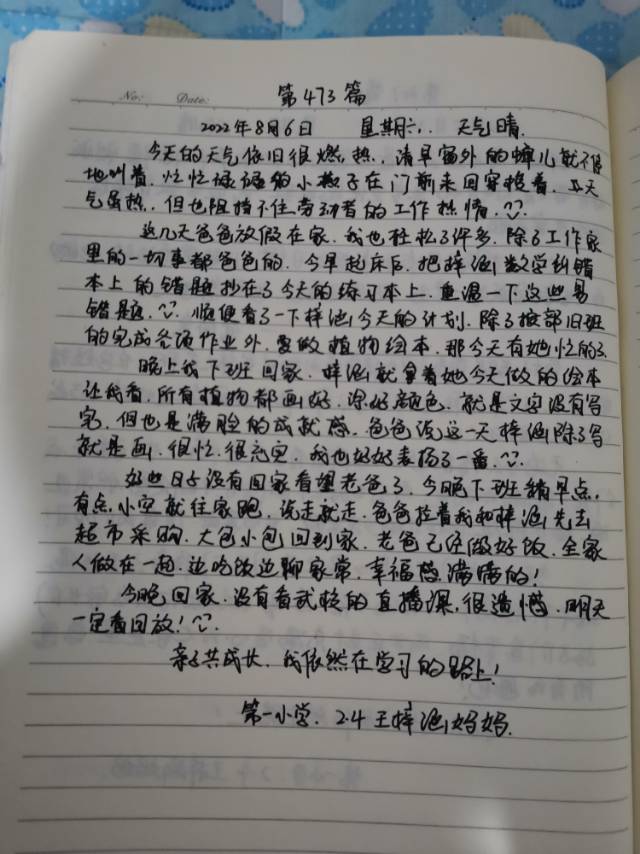 第473篇
No: Date:
2022年8月6日 星期六.. 天气晴.
今天的天气依旧很燃热, 清早窗外的蝉儿就不停
地叫着, 忙忙碌碌的小燕子在门前来回穿梭着. 夏天
气虽热, 但也阻挡不住劳动者的工作热情.
这几天爸爸放假在家. 我也轻松了许多. 除了工作家
里的一切事都爸爸的. 今早起床后, 把梓涵数学纠错
本上的错题抄在了今天的练习本上. 重温一下这些易
错题. 顺便看了一下梓涵今天的计划. 除了按部旧班
的完成各项作业外. 要做植物绘本. 那今天有她忙的了.
晚上我下班回家. 梓涵就拿着她今天做的绘本
让我看. 所有植物都画好. 涂好颜色. 就是文字没有写
完. 但也是满脸的成就感. 爸爸说这一天梓涵除了写
就是画. 很忙. 很充实. 我也好好表扬了一番.
好些日子没有回家看望老爸了. 今晚下班稍早点,
有点小空就往家跑. 说走就走. 爸爸拉着我和梓涵先去
超市采购. 大包小包回到家. 老爸已经做好饭. 全家
人做在一起. 边吃饭边聊家常. 幸福感满满的!
今晚回家. 没有看武校的直播课, 很遗憾. 明天
一定看回放!
亲子共成长. 我依然在学习的路上!
第一小学. 2.4 王梓涵妈妈.